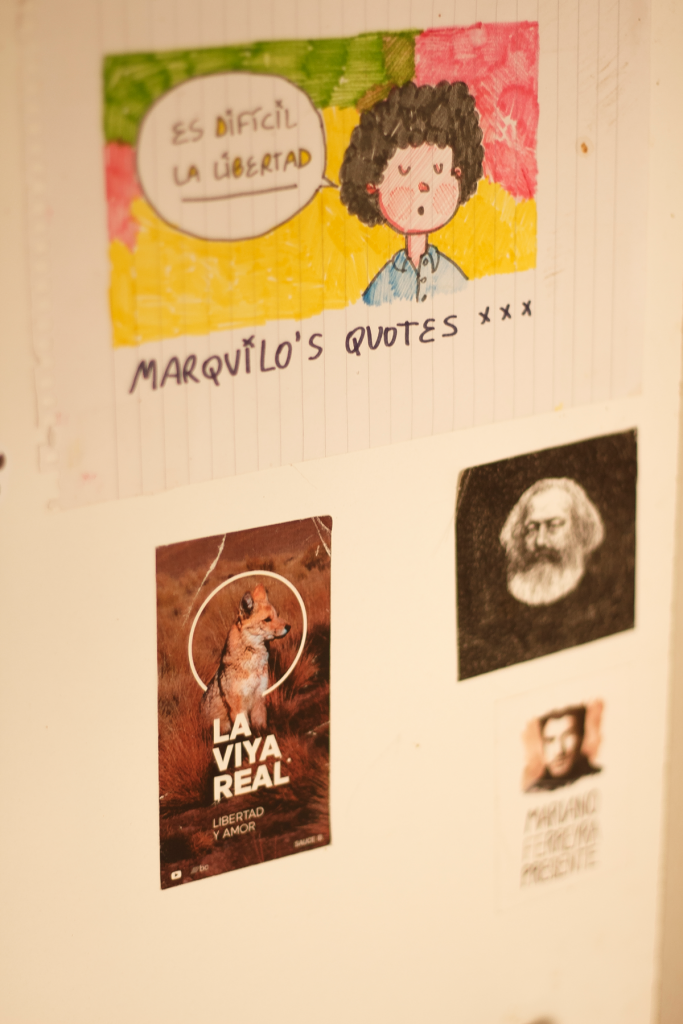 ES DIFÍCIL
LA LIBERTAD
MARQUILO'S QUOTES xxx
LA
VIYA
REAL
LIBERTAD
Y AMOR
SAUCE
MARIANO
FERREYRA
PRESENTE